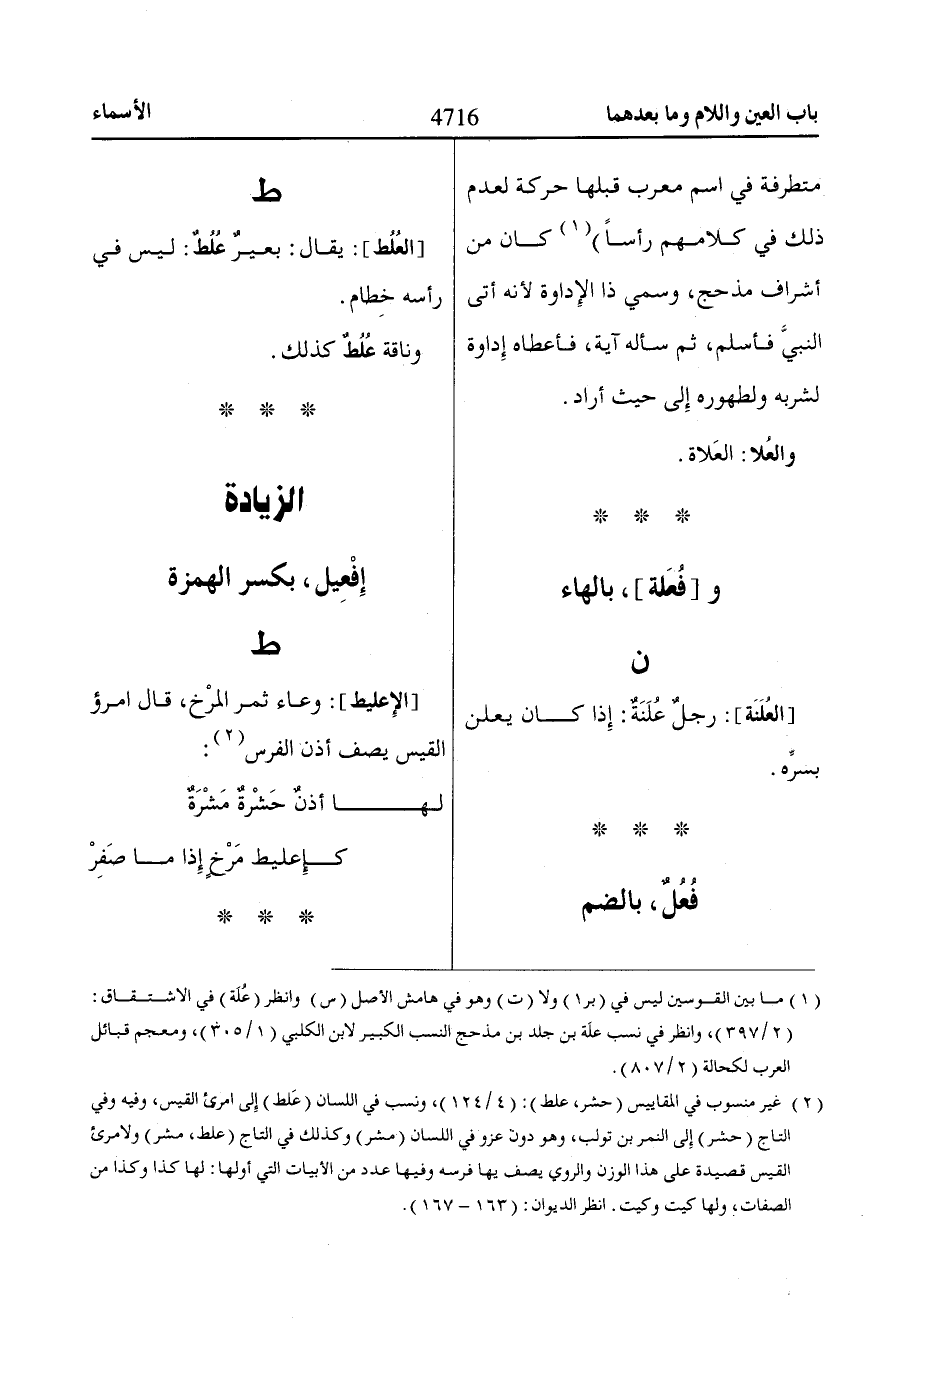 باب العين واللام وما بعدهما
4716
الأسماء
متطرفة في اسم معرب قبلها حركة لعدم
ذلك في كلامهم رأساً)(١) كان من
أشراف مذحج، وسمي ذا الإداوة لأنه أتى
النبيَّ فأسلم، ثم سأله آية، فأعطاه إداوة
لشربه ولطهوره إلى حيث أراد.
والعُلا: العَلاة.
* * *
و [فُعَلة]، بالهاء
ن
[العُلَنَة]: رجلٌ عُلَنَةٌ: إذا كان يعلن
بسرِّه.
* * *
فُعُلٌ، بالضم
ط
[العُلُط]: يقال: بعيرٌ عُلُطٌ: ليس في
رأسه خطام.
وناقة عُلُطٌ كذلك.
* * *
الزيادة
إفْعِيل، بكسر الهمزة
ط
[الإعليط]: وعاء ثمر المرْخ، قال امرؤ
القيس يصف أذن الفرس(٢):
لها أذنٌ حَشْرةٌ مَشْرَةٌ
كإعليط مَرْخٍ إذا ما صَفِرْ
* * *
(١) ما بين القوسين ليس في (بر١) ولا (ت) وهو في هامش الأصل (س) وانظر (عُلَة) في الاشتقاق:
(٣٩٧/٢)، وانظر في نسب علَة بن جلد بن مذحج النسب الكبير لابن الكلبي (٣٠٥/١)، ومعجم قبائل
العرب لكحالة (٨٠٧/٢).
(٢) غير منسوب في المقاييس (حشر، علط): (١٢٤/٤)، ونسب في اللسان (عَلط) إلى امرئ القيس، وفيه وفي
التاج (حشر) إلى النمر بن تولب، وهو دون عزو في اللسان (مشر) وكذلك في التاج (علط، مشر) ولامرئ
القيس قصيدة على هذا الوزن والروي يصف يها فرسه وفيها عدد من الأبيات التي أولها: لها كذا وكذا من
الصفات، ولها كيت وكيت. انظر الديوان: (١٦٣ – ١٦٧).